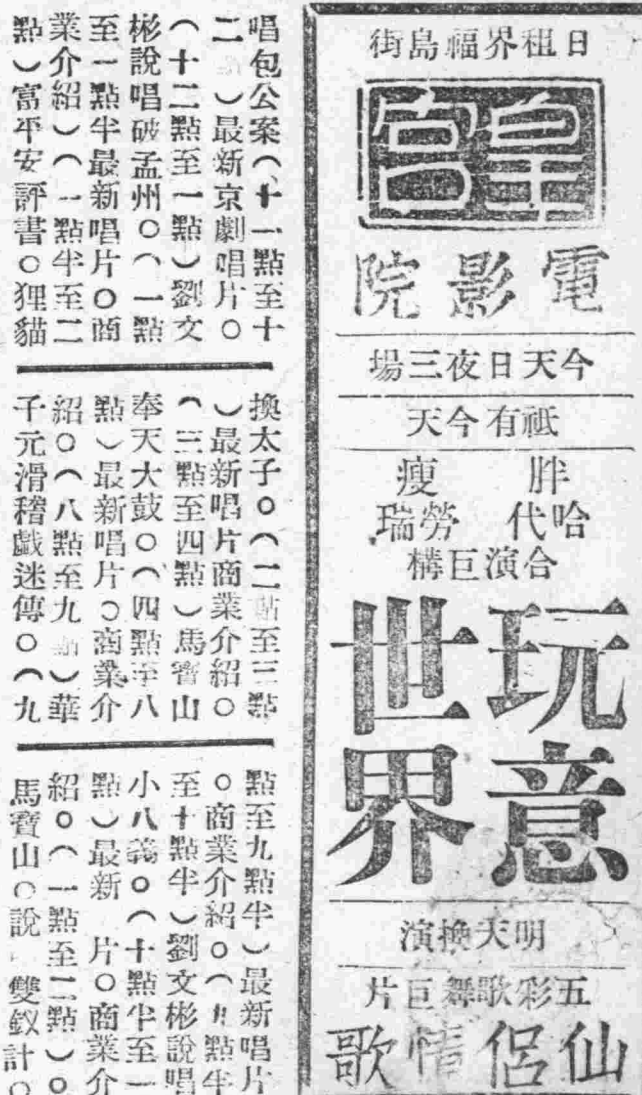 日租界福島街
皇宮
電影院
今天日夜三場
祇有今天
胖 瘦
哈代 勞瑞
合演巨構
玩意
世界
明天換演
五彩歌舞巨片
仙侶情歌
唱包公案(十一點至十
二 )最新京劇唱片○
(十二點至一點)劉文
彬說唱破孟州○(一點
至一點半最新唱片○商
業介紹)(一點半至二
點)富平安評書○狸貓
換太子○(二點至三點
)最新唱片商業介紹○
(三點至四點)馬寶山
奉天大鼓○(四點至八
點)最新唱片○商業介
紹○(八點至九點)華
子元滑稽戲迷傳○(九
點至九點半)最新唱片
○商業介紹○(九點半
至十點半)劉文彬說唱
小八義○(十點半至一
點)最新 片○商業介
紹○(一點至二點)○
馬寶山○說 雙釵計○